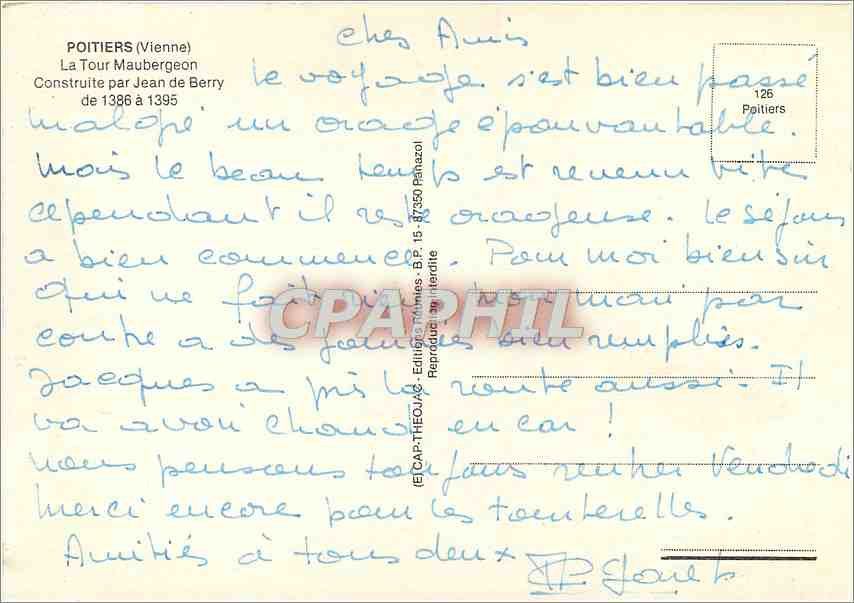 POITIERS (Vienne)
La Tour Maubergeon
Construite par Jean de Berry
de 1386 à 1395
126
Poitiers
(E) CAP-THEOJAC - Editions Réunies - B.P. 15 - 87350 Panazol
Reproduction interdite
CPAPHIL
Chers Amis
Le voyage s'est bien passé
malgré un orage épouvantable.
Mais le beau temps est revenu vite
cependant il reste orageuse. Le séjour
a bien commencé. Pour moi bien sûr
qui ne fait rien, mon mari par
contre a des journées bien remplies.
Jacques a pris la route aussi. Il
va avoir chaud en car !
nous pensons toujours rentrer Vendredi
merci encore pour les tourterelles.
Amitiés à tous deux